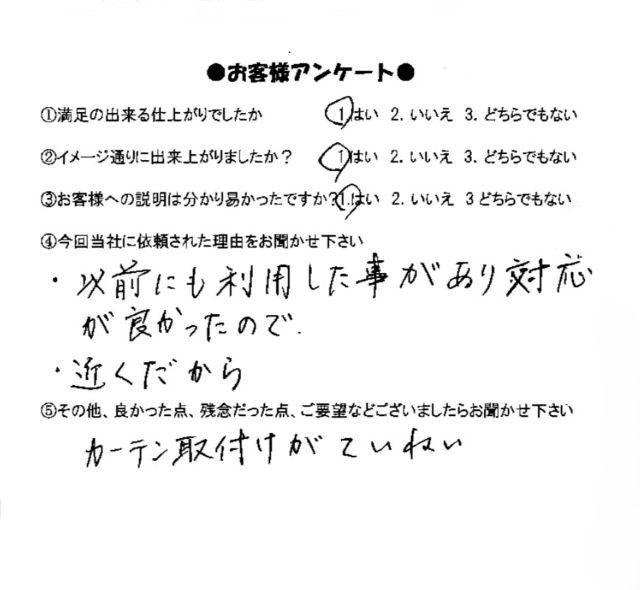 ●お客様アンケート●
①満足の出来る仕上がりでしたか 1.はい 2. いいえ 3. どちらでもない
②イメージ通りに出来上がりましたか？ 1.はい 2. いいえ 3. どちらでもない
③お客様への説明は分かり易かったですか?1.はい 2. いいえ 3 どちらでもない
④今回当社に依頼された理由をお聞かせ下さい
・以前にも利用した事があり対応
が良かったので.
・近くだから
⑤その他、良かった点、残念だった点、ご要望などございましたらお聞かせ下さい
カーテン取付けがていねい